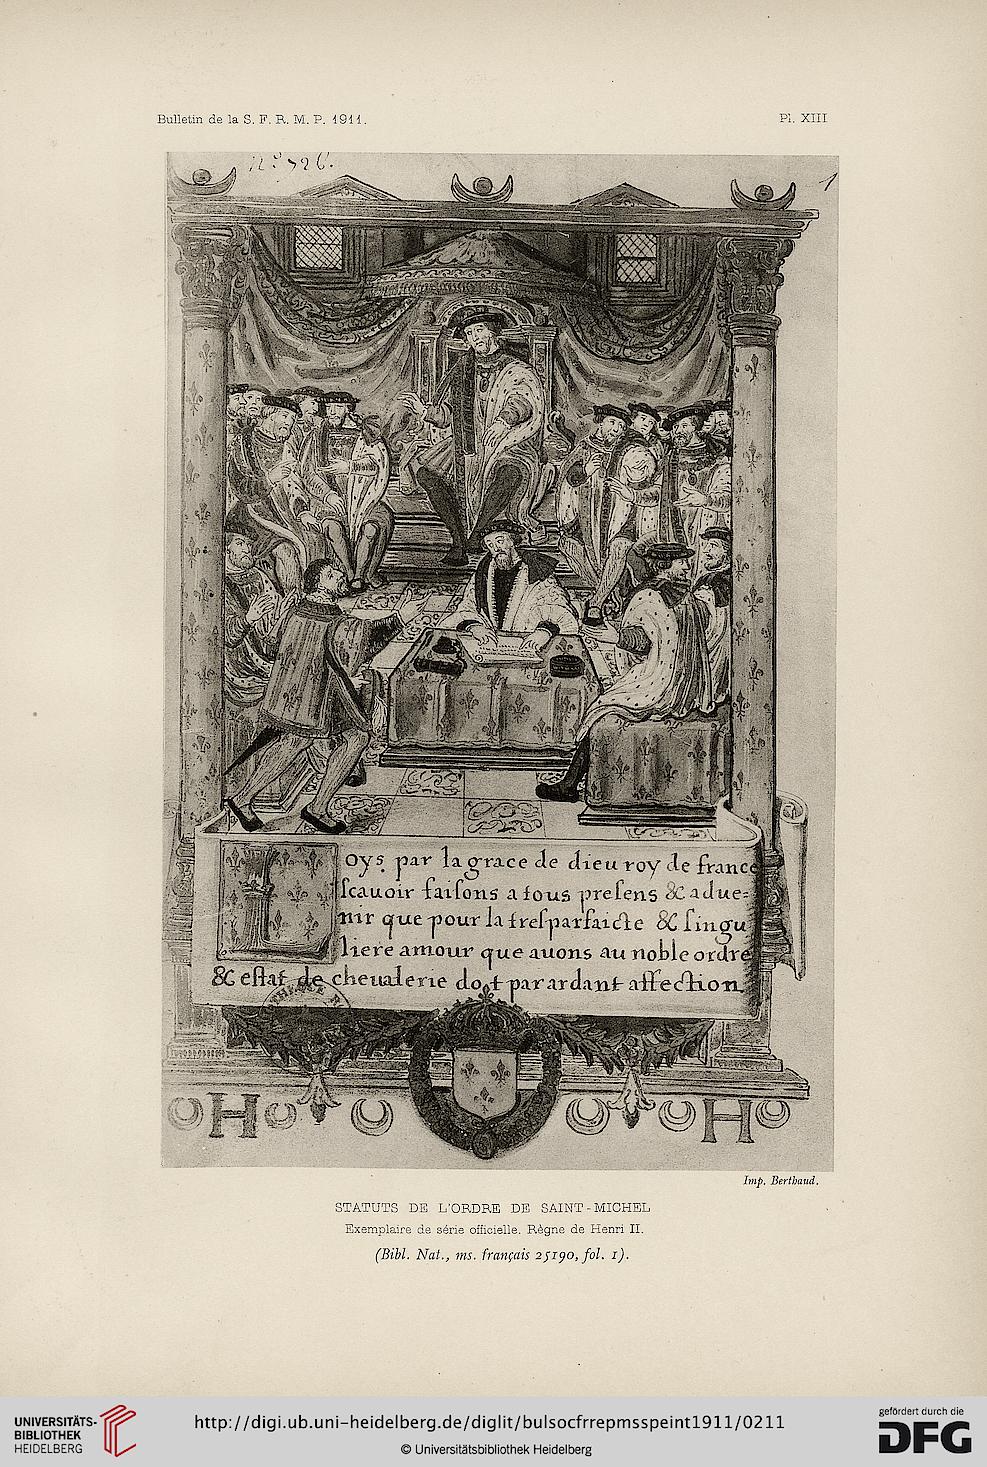 Bulletin de la S. F. R. M. P. 1911.
Pl. XIII
nº 726.
1
oys par la grace de dieu roy de france
ſcauoir faiſons a tous preſens & adue=
nir que pour la treſparfaicte & ſingu
liere amour que auons au noble ordre
& eſtat de cheualerie do t par ardant affection
H H
Imp. Berthaud.
STATUTS DE L'ORDRE DE SAINT-MICHEL
Exemplaire de série officielle. Règne de Henri II.
(Bibl. Nat., ms. français 25190, fol. 1).
UNIVERSITÄTS-
BIBLIOTHEK
HEIDELBERG
http://digi.ub.uni-heidelberg.de/diglit/bulsocfrrepmsspeint1911/0211
© Universitätsbibliothek Heidelberg
gefördert durch die
DFG